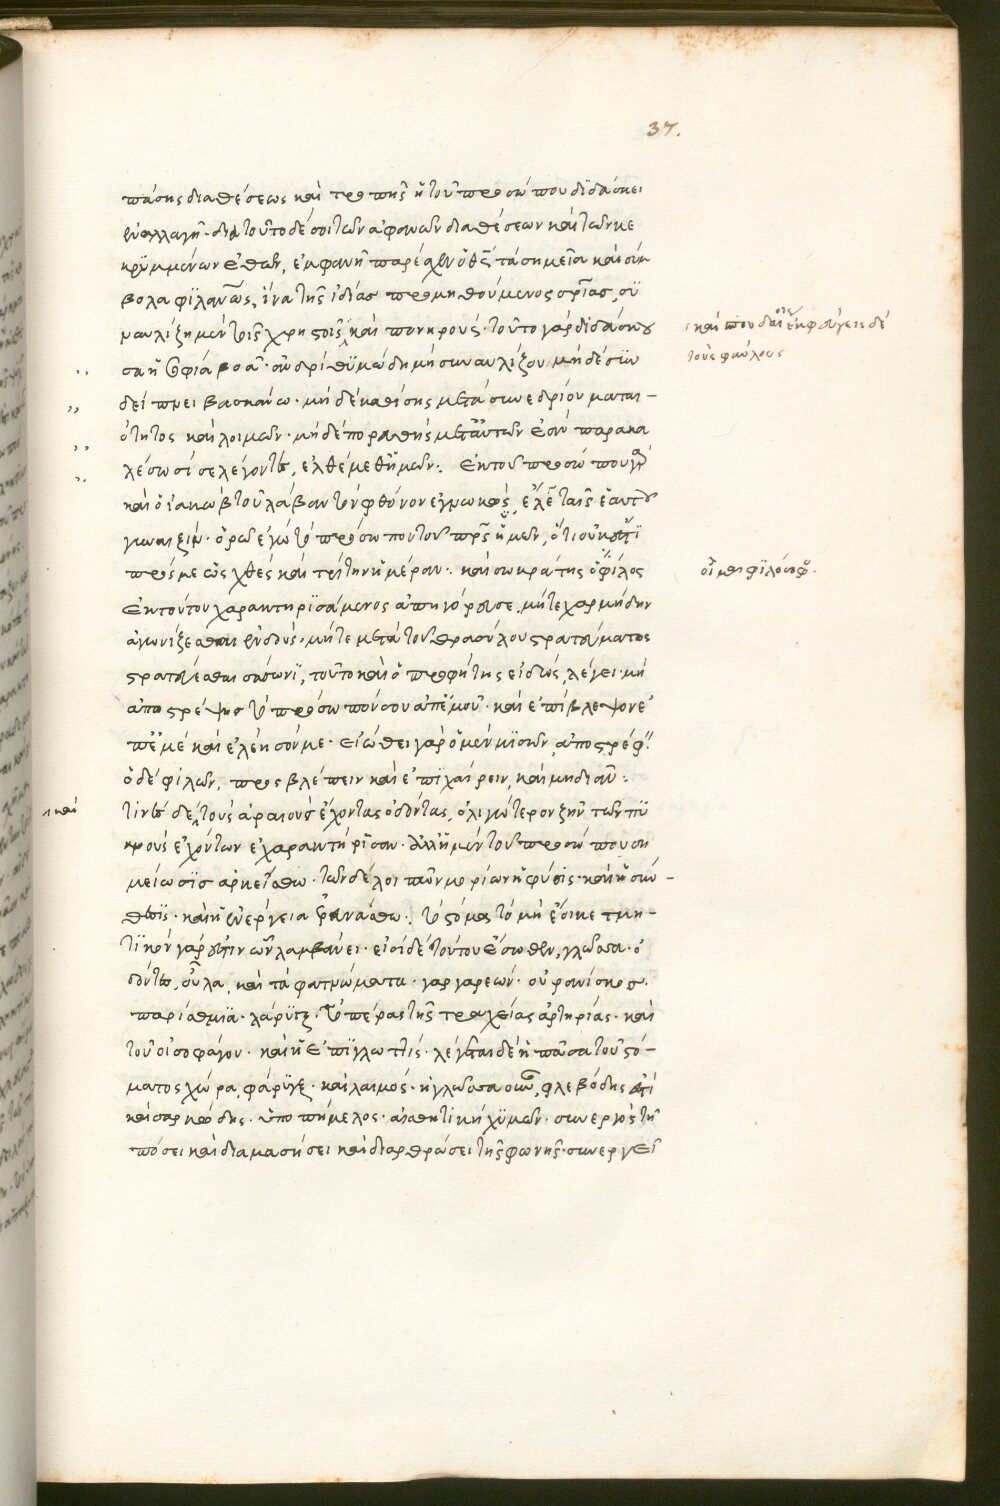 37.
πάσης διαθέσεως καὶ τροπῆς ἡ τοῦ προσώπου διδάσκει
ἐναλλαγή. διὰ τοῦτο δέ ἐπὶ τῶν ἀφανῶν διαθέσεων καὶ τῶν κε
κρυμμένων ἐθῶν, ἐκφανῆ παρέσχεν ὁ θς τὰ σημεῖα καὶ σύμ
βολα φιλανως, ἵνα τῆς ἰδίας προμηθούμενος σρίας, συ
ναυλίζη μὲν τοῖς χρηστοῖς καὶ πονηρούς. τοῦτο γὰρ διδάσκου
σα ἡ σοφία βοᾶ. ἀνδρὶ θυμώδη μὴ συναυλίζου μὴ δὲ συν
δείπνει βασκάνω. μὴ δὲ καθίσης μετὰ συνεδρίου μαται-
ότητος καὶ λοιμῶν. μὴ δὲ πορευθῆς μετ αὐτῶν ἐὰν παρακα
λέσωσί σε λέγοντες, ἐλθὲ μεθ ἡμῶν. ἐκ τοῦ προσώπου γὰρ
καὶ ὁ ἰακὼβ τοῦ λάβαν τὸν φθόνον ἐγνωκὼς, ἔλεγε ταῖς ἑαυτοῦ
γυναιξίν. ὁρῶ ἐγὼ τὸ πρόσωπον τοῦ πρς ἡμῶν, ὅτι οὐκ ἔστι
πρός με ὡς χθὲς καὶ τρίτην ἡμέραν. καὶ σωκράτης ὁ φίλος
ἐκ τούτου χαρακτηρισάμενος ἀπηγόρευσε, μήτε χαρμήδην
ἀγωνίζεσθαι ἐνδοὺς. μήτε μετὰ τοῦ θρασύλου στρατεύματος
στρατεύεσθαι τοῦτο καὶ ὁ προφήτης εἰδὼς, λέγει. μὴ
ἀποστρέψης τὸ πρόσωπόν σου ἀπ ἐμοῦ. καὶ ἐπίβλεψον ἐ
π ἐμὲ καὶ ἐλέησόν με. εἰώθει γὰρ ὁ μὲν μισῶν, ἀποστρέφ
ὁ δὲ φιλῶν, προσβλέπειν καὶ ἐπιχαίρειν, καὶ μηδιᾶν.
τινὲς δὲ τοὺς ἀραιοὺς ἔχοντας ὀδόντας, ὀλιγώτερον ζῆν τῶν πυ
κνοὺς ἐχόντων ἐχαρακτήρισαν. ἀλλ ἡ μὲν τοῦ προσώπου ση
μείωσις ἀρκείσθω. τῶν δὲ λοιπῶν μορίων ἡ φύσις. καὶ ἡ σύν-
θεσις. καὶ ἡ ἐνέργεια ἐρευνάσθω. τὸ στόμα τὸ μὴ ἔοικε τμη-
τικὸν γάρ ἐστιν ὧν λαμβάνει. εἰσὶ δὲ τούτου ἔσωθεν, γλῶσσα. ὀ
δόντες, οὖλα, καὶ τὰ φατνώματα. γαργαρεών. οὐρανίσκος.
παρίσθμια. λάρυγξ. τὸ πέρας τῆς τραχείας ἀρτηρίας. καὶ
τοῦ οἰσοφάγου. καὶ ἡ ἐπιγλωττίς. λέγεται δὲ ἡ πᾶσα τοῦ στό-
ματος χώρα, φάρυγξ. καὶ λαιμός. ἡ γλῶσσα φλεβώδης ἐστὶ
καὶ σαρκώδης. ὑποπήμελος. αἰσθητικὴ χυμῶν. συνεργὸς τῆ
πόσει καὶ διαμασήσει καὶ διαρθρώσει τῆς φωνῆς. συνεργεῖ
καὶ σπουδαίοις ἐκφεύγεις δὲ
τοὺς φαύλους
καὶ